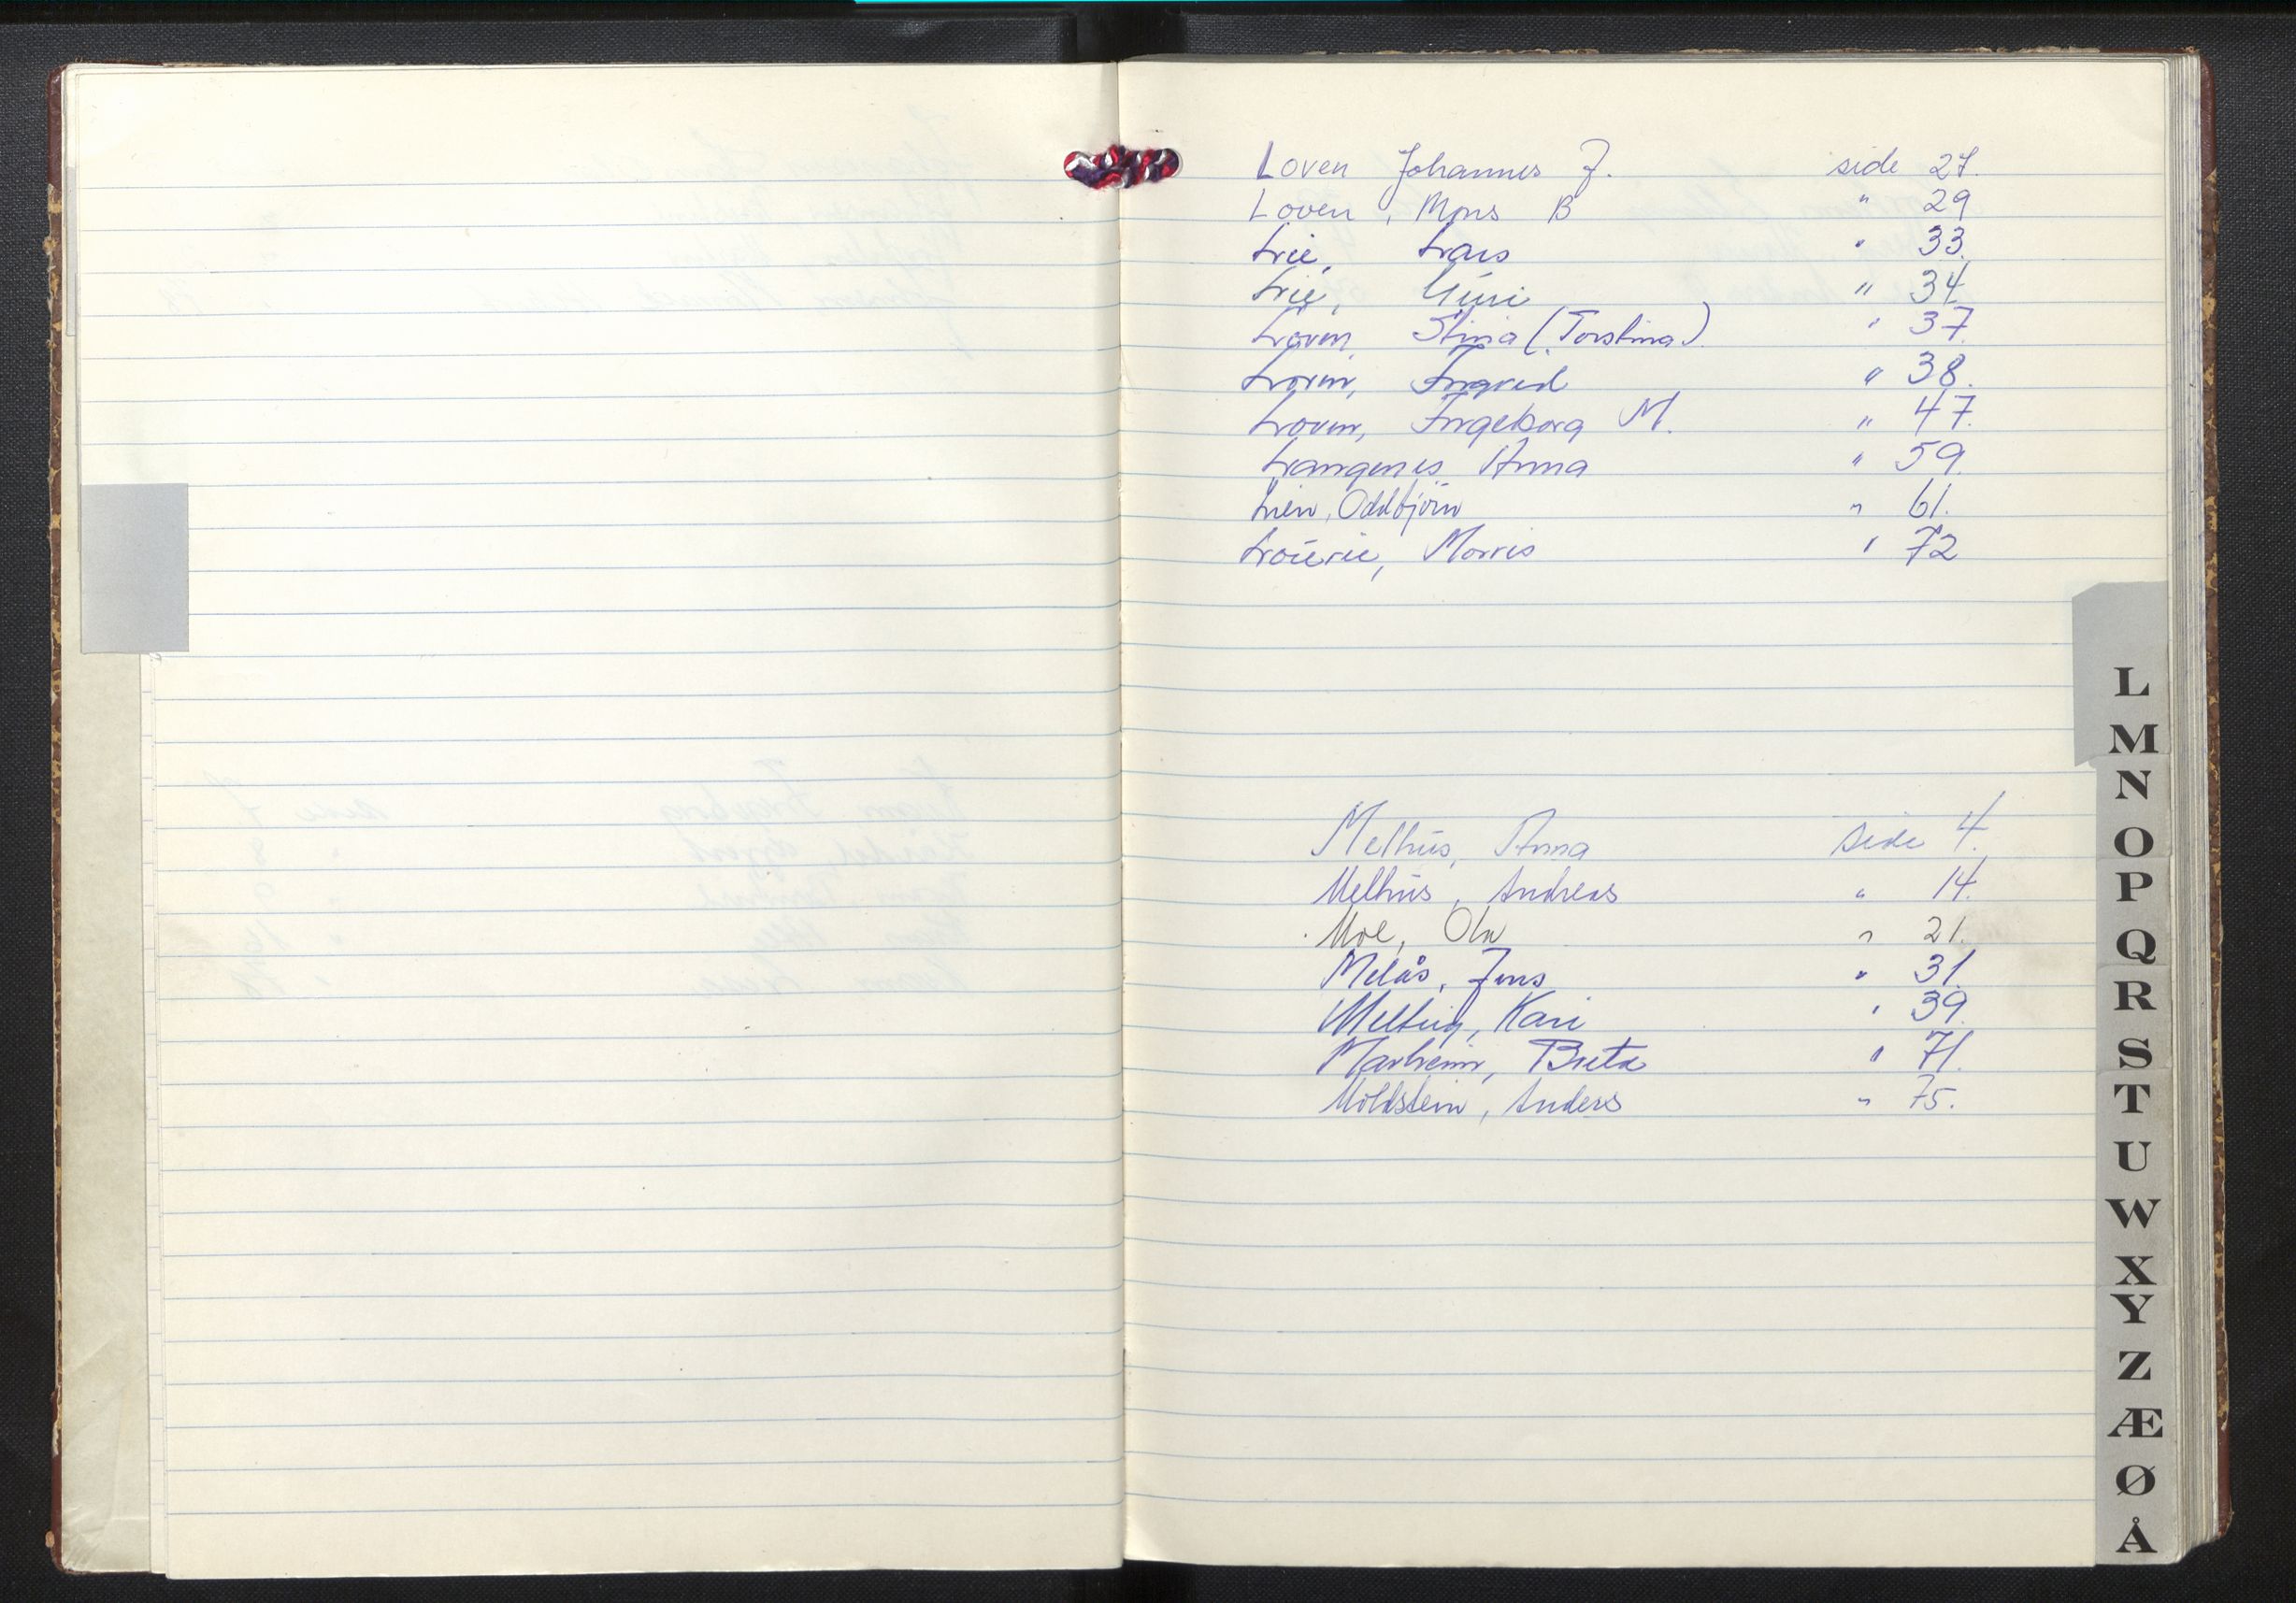 Loven Johannes J. side 27.
Loven, Mons B " 29
Lie, Lars " 33.
Lie, Guri " 34
Loven, Stina (Torstina) " 37
Loven, Ingrid " 38.
Loven, Ingeborg M. " 47.
Langenes Anna " 59.
Lien, Oddbjörn " 61.
Morris " 72
Melhus, Anna side 4.
Melhus, Andreas " 14.
Moe, Ola " 21.
Melås, Jens " 31.
Kari " 39.
Marheim, Breta " 71.
Moldstein, Anders " 75.
L
M
N
O
P
Q
R
S
T
U
W
X
Y
Z
Æ
Ø
Å